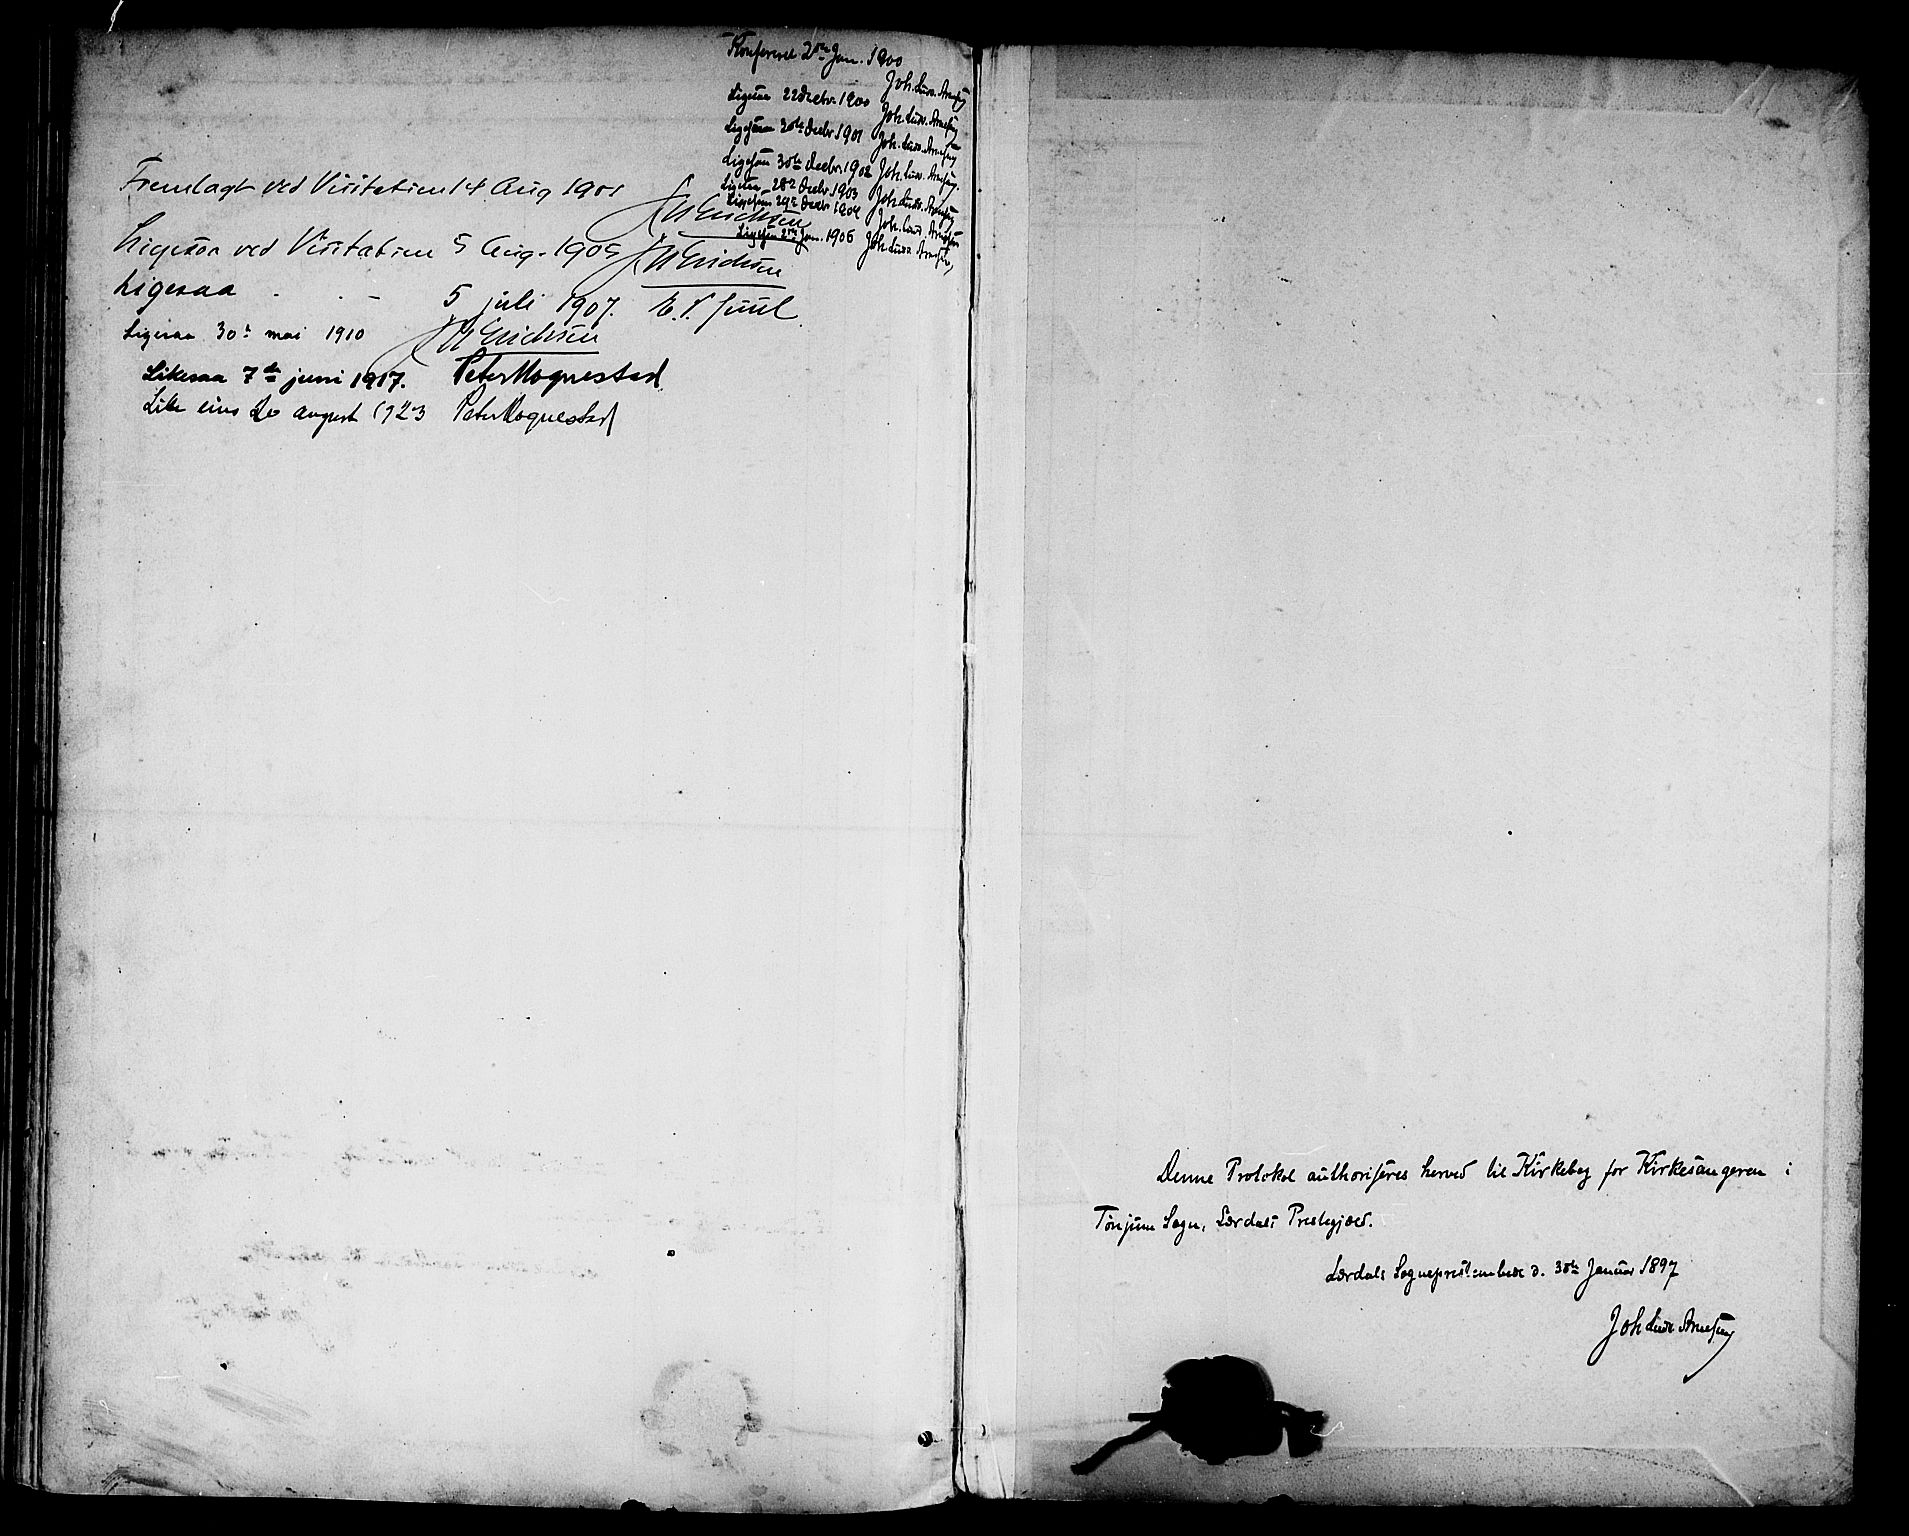 Konfereret 2den Jan. 1900
Joh. Ludv. Arnesen
Ligesaa 22 Decbr. 1900 Joh. Ludv. Arnesen
Ligesaa 30te Decbr 1901 Joh. Ludv. Arnesen
Ligesaa 30te Decbr. 1902 Joh. Ludv. Arnesen
Ligesaa 28de Decbr. 1903 Joh. Ludv. Arnesen
Ligesaa 29de Decbr 1904 Joh. Ludv. Arnesen
Ligesaa 2den Jan. 1906 Joh. Ludv. Arnesen
Fremlagt ved Visitatien 14 Aug 1901 Erichsen
Ligesaa ved Visitatien 5 Aug. 1905 Erichsen
Ligesaa 5 juli 1907. E. Juul
Ligesaa 30. mai 1910 Erichsen
Likesaa 7de juni 1917. Peter Hognestad
Like eins 20 august 1923 Peter Hognestad
Denne Protokol authoriseres herved til Kirkebog for Kirkesangeren i
Tønjum Sogn, Lærdals Prestegjæld.
Lærdals Sogneprestembede d. 30te Januar 1897
Joh Ludv Arnesen